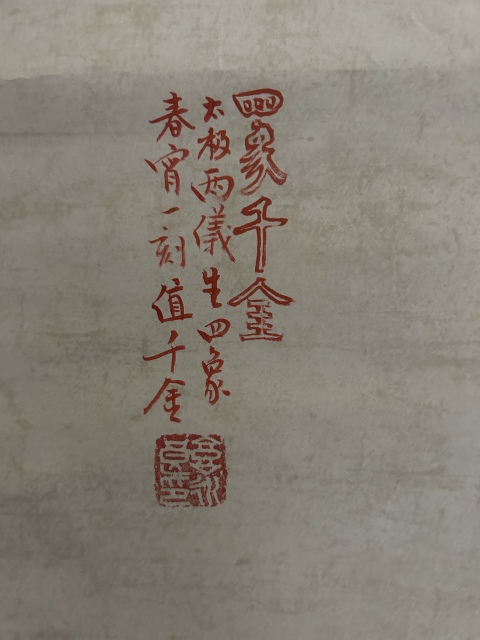 四象千金
太极两仪生四象
春宵一刻值千金